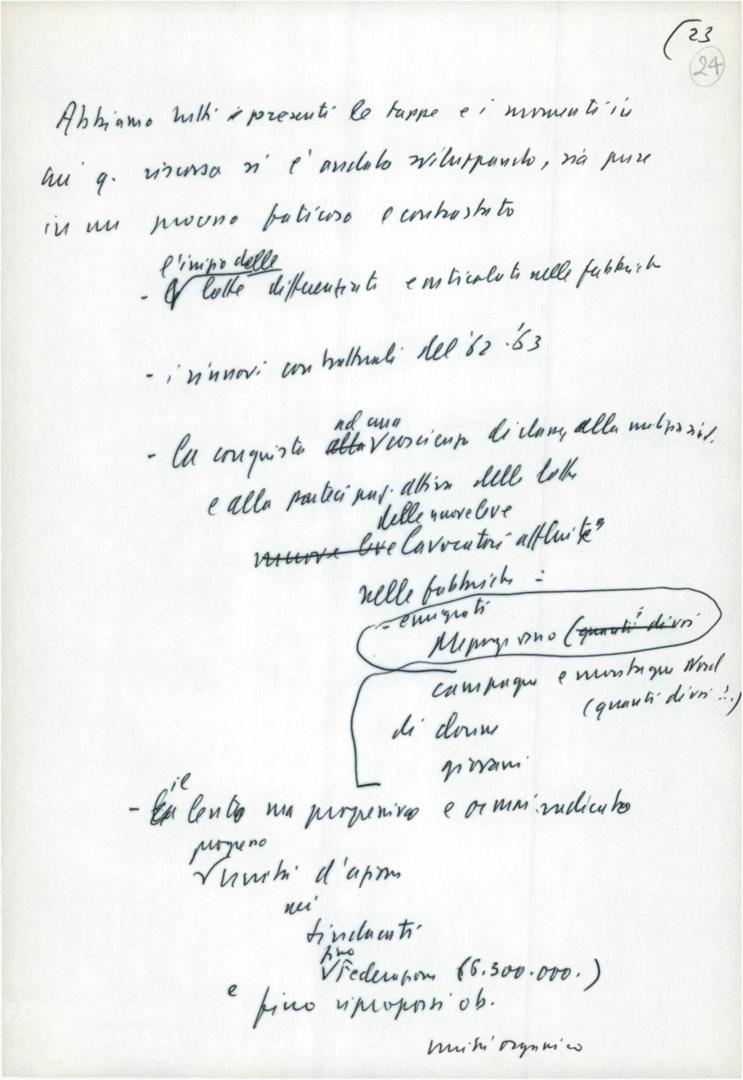 (23
24
Abbiamo tutti presenti le tappe e i momenti in
cui q. riscossa si è andata sviluppando, sia pure
in un processo faticoso e contrastato
l'inizio delle
- lotte differenziate e articolate nelle fabbriche
- i rinnovi contrattuali del '62-'63
ad una
- la conquista alla coscienza di classe, alla
e alla partecipaz. attiva delle lotte
delle nuove leve
nuove leve lavoratori affluite
nelle fabbriche:
- emigrati
Mezzogiorno (quanti di voi
campagne e montagne Nord
(quanti di voi!.)
di donne
giovani
il
- La lento ma progressivo e ormai radicato
progresso
unità d'azione
nei
sindacati
fino
Federazione (6.300.000.)
e fino riproporsi ob.
unità organica